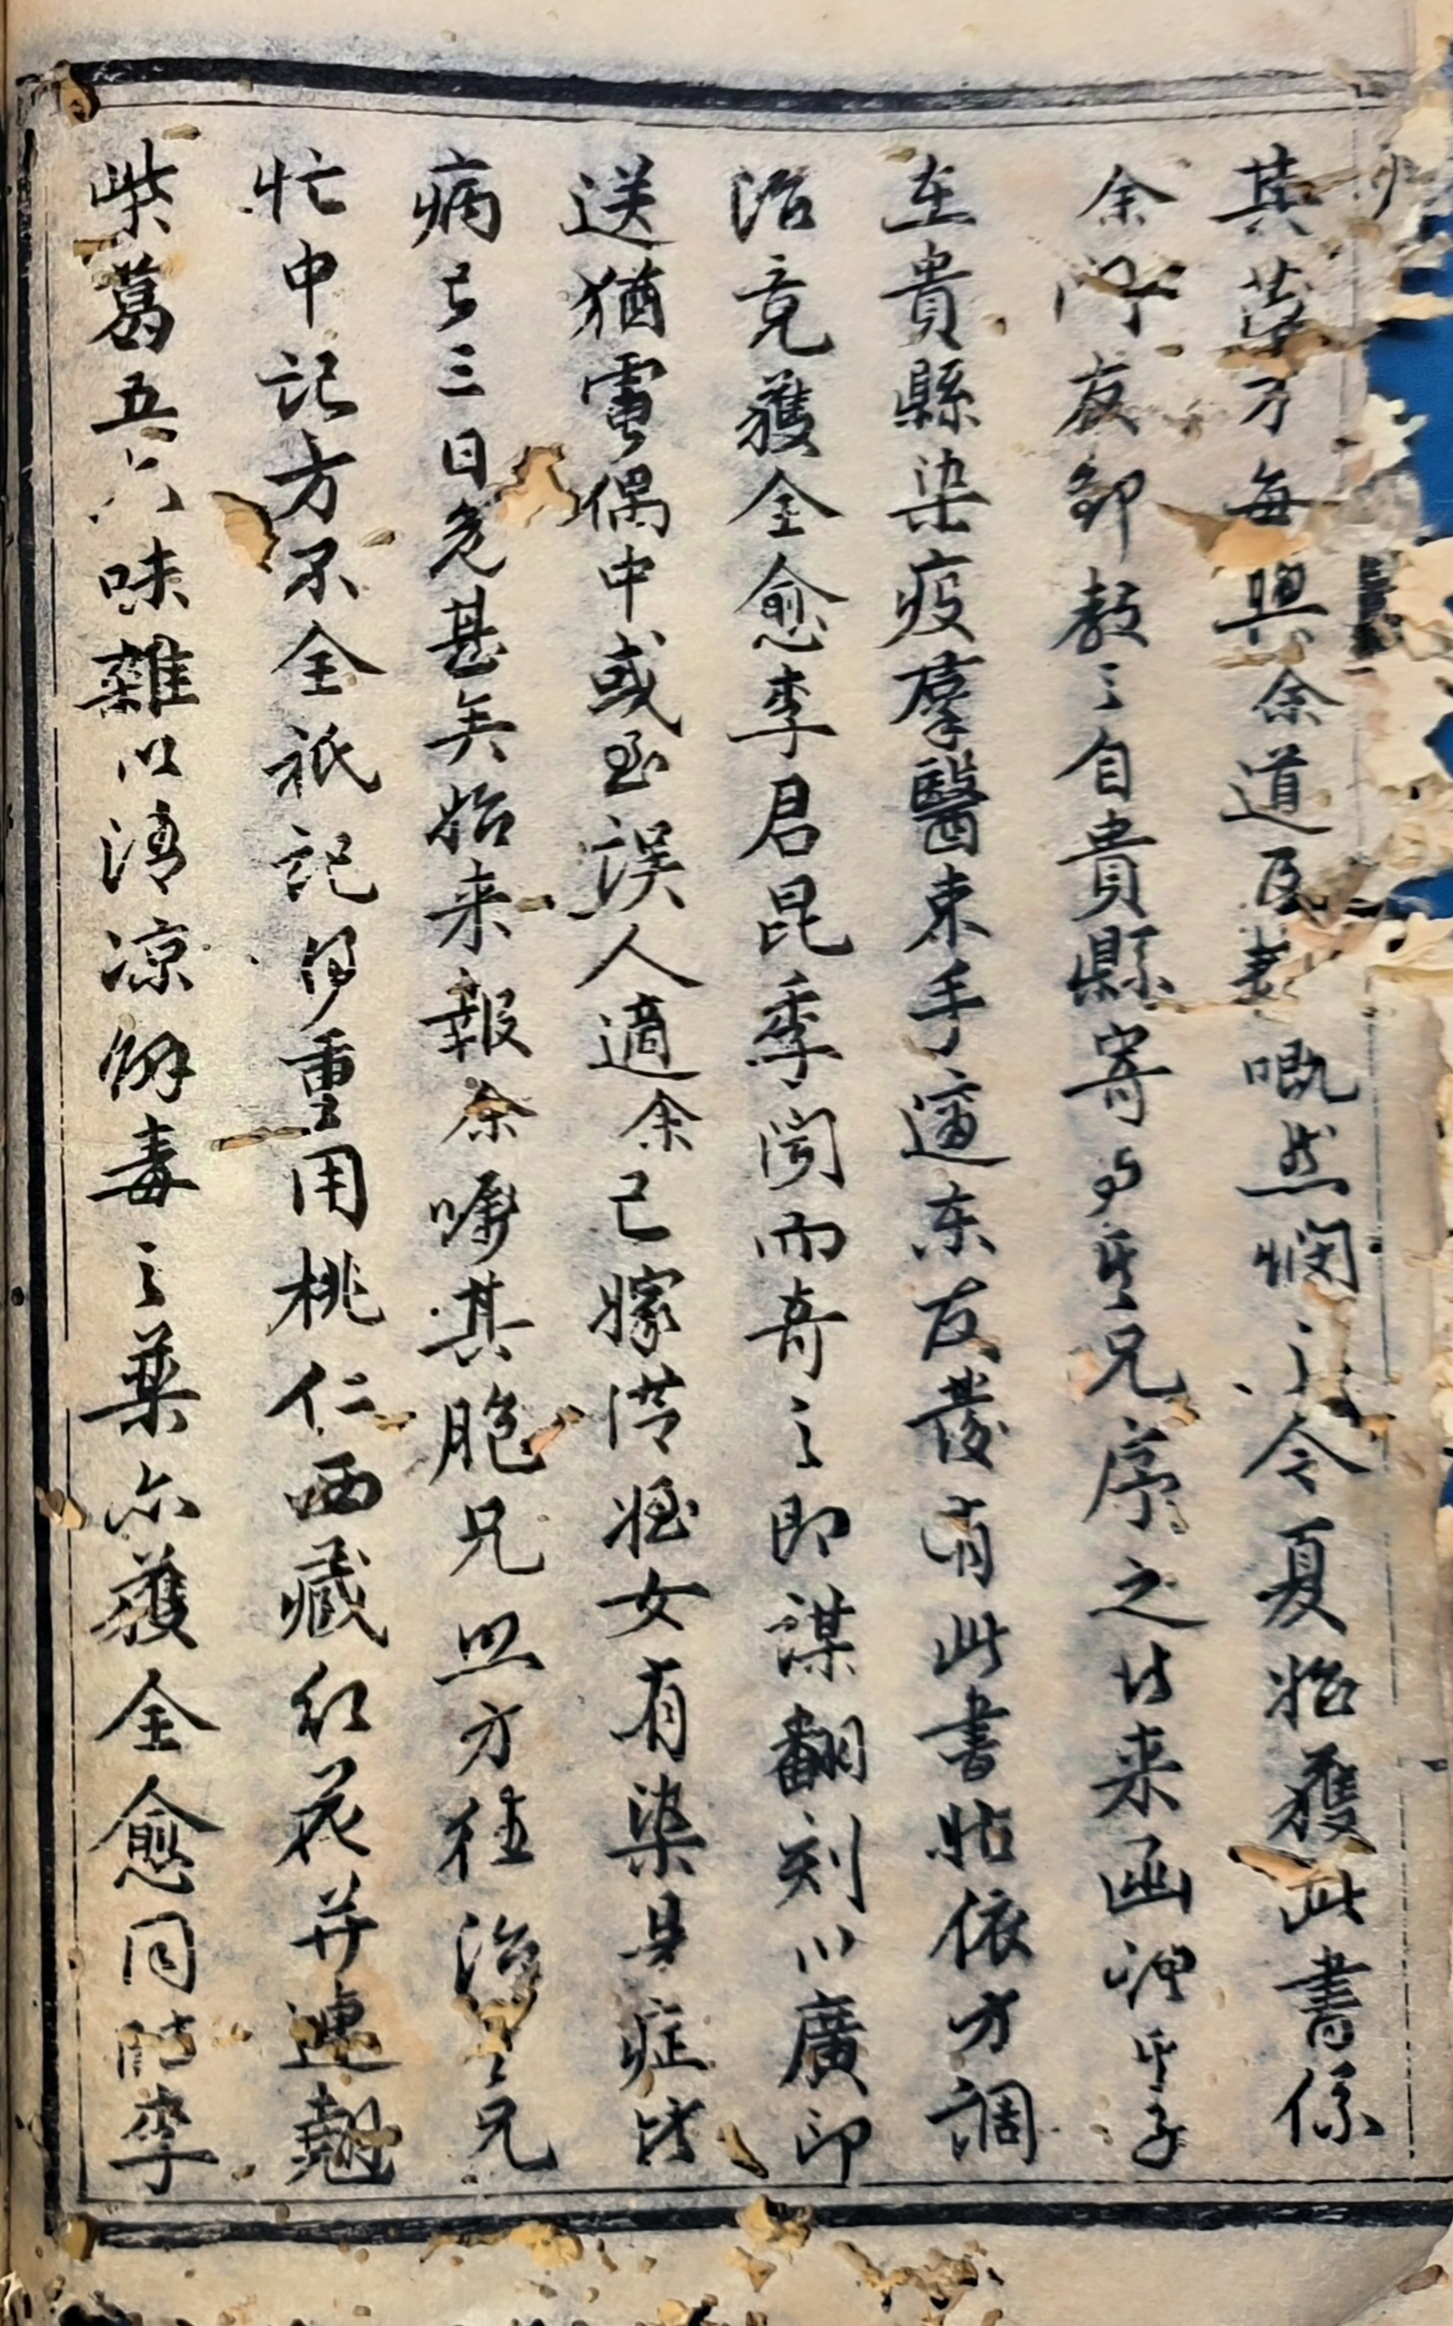 其苦方每與余道及輒嘅然憫之今夏始獲此書係
余門友鄒教之自貴縣寄兄序之昔来函謂乎子
在貴縣染疫羣醫束手適东友發有此書帖依方調
治竟獲全愈李君昆季闻而奇之即謀翻刻以廣印
送猶虑偶中或至誤人適余已嫁湛姪女有染是症皆
病已三日危甚矣始来報余囑其胞兄照方往治兄
忙中記方不全祇記得重用桃仁西藏红花并連翹
柴葛五六味雜以清凉解毒之藥亦獲全愈同時李